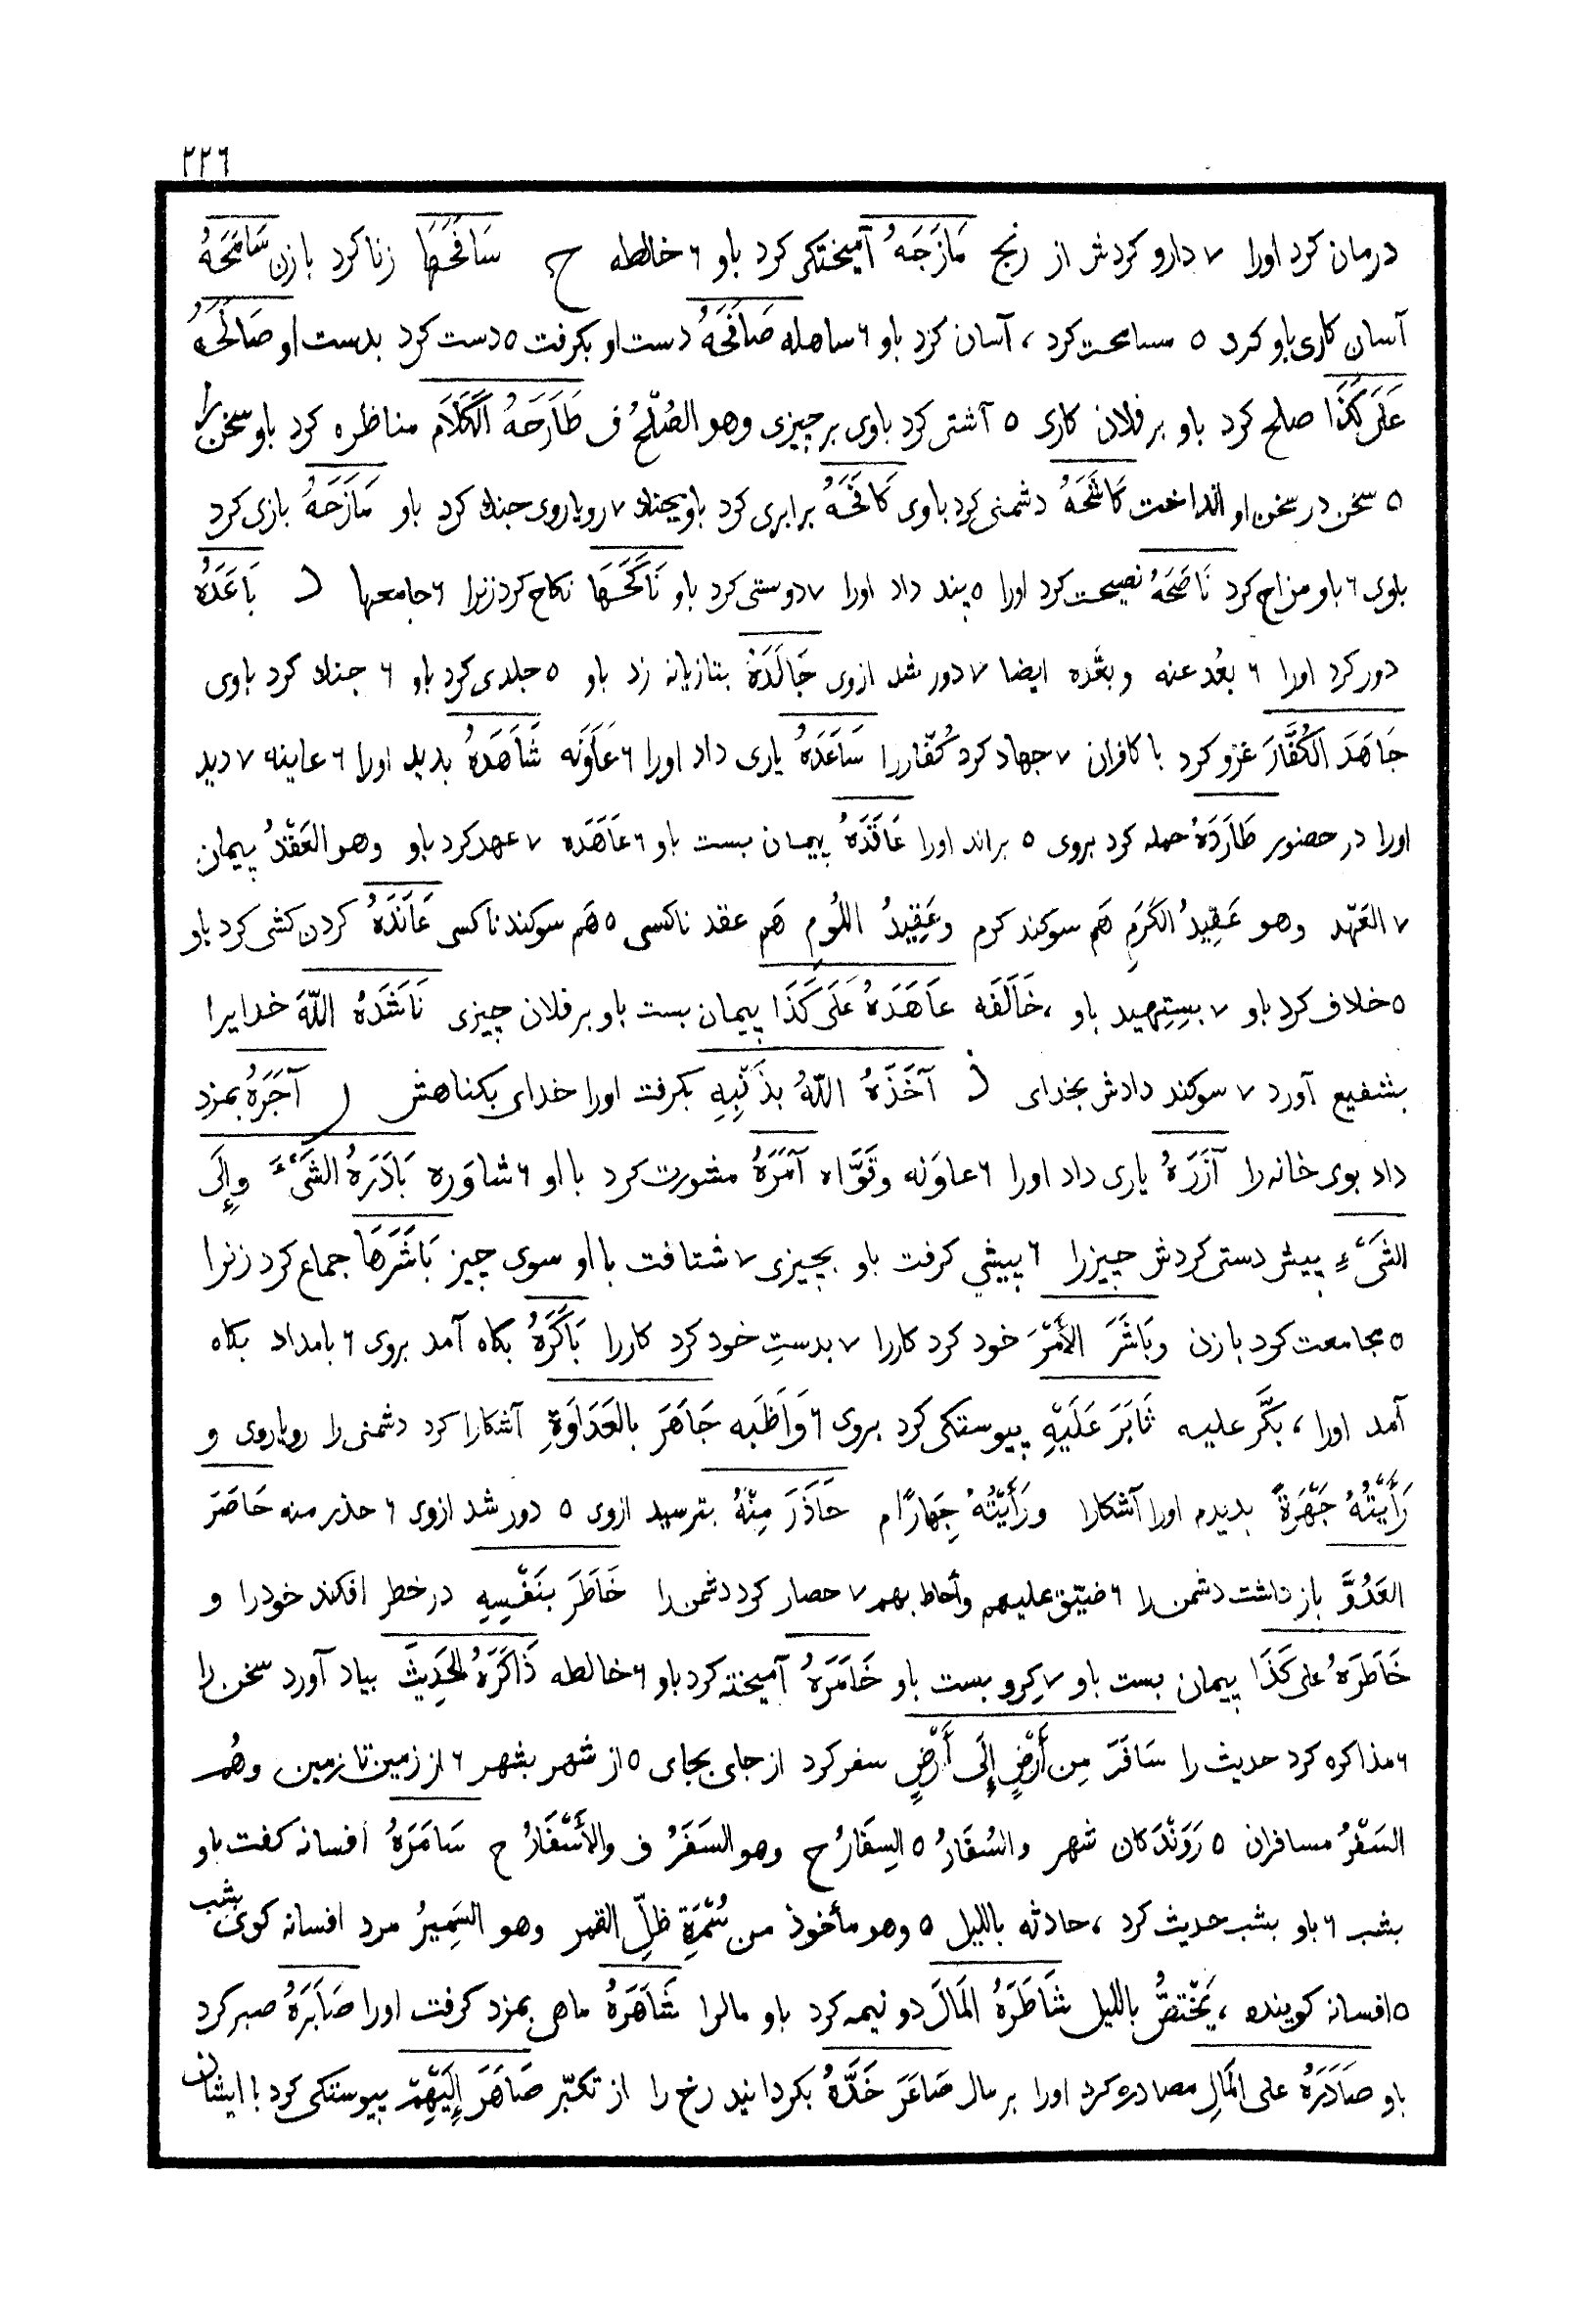 ٢٢٦
درمان کرد اورا ٧ دارو کردش از رنج مَازَجَهُ آمیختکی کرد باو ٦ خالطه ح سَافَحَهَا زنا کرد با زن سَامَحَهُ
آسان کاری باو کرد ٥ مسامحت کرد ، آسان کرد باو ٦ ساهله صَافَحَهُ دست او بکرفت ٥ دست کرد بدست او صَالَحَهُ
عَلَی کَذَا صلح کرد باو بر فلان کاری ٥ آشتی کرد باوی بر چیزی وهو الصُلْحُ ف طَارَحَهُ الکَلَامَ مناظره کرد باو سخن را
٥ سخن در سخن او انداخت کَاشَحَهُ دشمنی کرد باوی کَافَحَهُ برابری کرد باو بجنك ٧ رویاروی جنك کرد باو مَازَحَهُ بازی کرد
باوی ٦ باو مزاح کرد نَاصَحَهُ نصیحت کرد اورا ٥ پند داد اورا ٧ دوستی کرد باو نَاکَحَهَا نکاح کرد زنرا ٦ جامعها د بَاعَدَهُ
دور کرد اورا ٦ بعُد عنه وبعَّده ایضا ٧ دور شد ازوی جَالَدَهُ بتازیانه زد باو ٥ جلدی کرد باو ٦ جنك کرد باوی
جَاهَدَ الکُفَّارَ غزو کرد با کافران ٧ جهاد کرد کُفّاررا سَاعَدَهُ یاری داد اورا ٦ عَاوَنَه شَاهَدَهُ بدید اورا ٦ عاینه ٧ دید
اورا در حضور طَارَدَهُ حمله کرد بروی ٥ براند اورا عَاقَدَهُ پیمان بست باو ٦ عَاهَدَه ٧ عهد کرد باو وهو العَقْدُ پیمان
٧ العَهْد وهو عَقِیدُ الکَرَمِ هَم سوکند کرم وعَقِیدُ اللُومِ هَم عقد ناکسی ٥ هَم سوکند ناکسی عَانَدَهُ کردن کشی کرد باو
٥ خلاف کرد باو ٧ بستِهید باو ، خَالَفَه عَاهَدَهُ عَلَی کَذَا پیمان بست باو بر فلان چیزی نَاشَدَهُ اللّهَ خدایرا
بشفیع آورد ٧ سوکند دادش بخدای ذ آخَذَهُ اللّهُ بذَنْبِهِ بکرفت اورا خدای بکناهش ر آجَرَهُ بمزد
داد بوی خانه را آزَرَهُ یاری داد اورا ٦ عاوَنه وقَوَّاه آمَرَهُ مشورت کرد با او ٦ شاوَره بَادَرَهُ الشَیْءَ وإِلَی
الشَیْءِ پیش دستی کردش چیزرا ٦ پیشي کرفت باو بچیزی ٧ شتافت با او سوی چیز بَاشَرَهَا جماع کرد زنرا
٥ مجامعت کرد با زن وبَاشَرَ الأَمْرَ خود کرد کاررا ٧ بدستِ خود کرد کاررا بَاکَرَهُ بکاه آمد بروی ٦ بامداد بکاه
آمد اورا ، بَکَّر علیه ثَابَرَ عَلَیْهِ پیوستکی کرد بروی ٦ وَاظَبَه جَاهَرَ بالعَدَاوَةِ آشکارا کرد دشمنی را رویاروی و
رَأَیْتُهُ جَهْرَةً بدیدم اورا آشکارا ورَأَیْتُهُ جِهَارًا م حَاذَرَ مِنْهُ بترسید ازوی ٥ دور شد ازوی ٦ حذر منه حَاصَرَ
العَدُوَّ باز داشت دشمن را ٦ ضیّق علیهم وأحاط بهم ٧ حصار کرد دشمن را خَاطَرَ بنَفْسِهِ در خطر افکند خودرا و
خَاطَرَهُ علی کَذَا پیمان بست باو ٧ کِرو بست باو خَامَرَهُ آمیخته کرد باو ٦ خالطه ذَاکَرَهُ الحَدِیثَ بیاد آورد سخن را
٦ مذاکره کرد حدیث را سَافَرَ مِن أَرْضٍ إِلَی أَرْضٍ سفر کرد از جای بجای ٥ از شهر بشهر ٦ از زمین تا زمین وهُم
السَفْرُ مسافران ٥ رَوَنْدَکان شهر والسُفَّارُ ٥ السِفَارُ ح وهو السَفَرُ ف والأَسْفَارُ ح سَامَرَهُ افسانه کفت باو
بشب ٦ باو بشب حدیث کرد ، حادثه باللیل ٥ وهو مأخوذ من سُمْرَةِ ظلِّ القمر وهو السَمِیرُ مرد افسانه کوی بشب
٥ افسانه کوینده ، یَخْتصُّ باللیل شَاطَرَهُ المَالَ دو نیمه کرد باو مالرا شَاهَرَهُ ماهی بمزد کرفت اورا صَابَرَهُ صبر کرد
باو صَادَرَهُ علی المَالِ مصادره کرد اورا بر مال صَاعَرَ خَدَّهُ بکردانید رخ را از تکبّر صَاهَرَ إِلَیْهِمْ پیوستکی کرد با ایشان